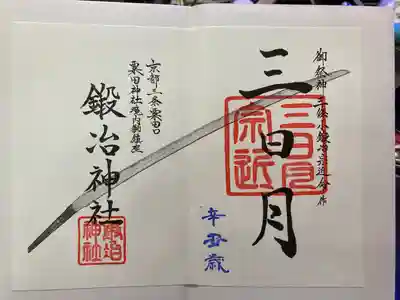 御祭神 三條小鍛冶宗近命 作
三日月
三日月
宗近
辛丑歳
京都三条粟田口
粟田神社境内御鎮座
鍛冶神社
鍛冶
神社